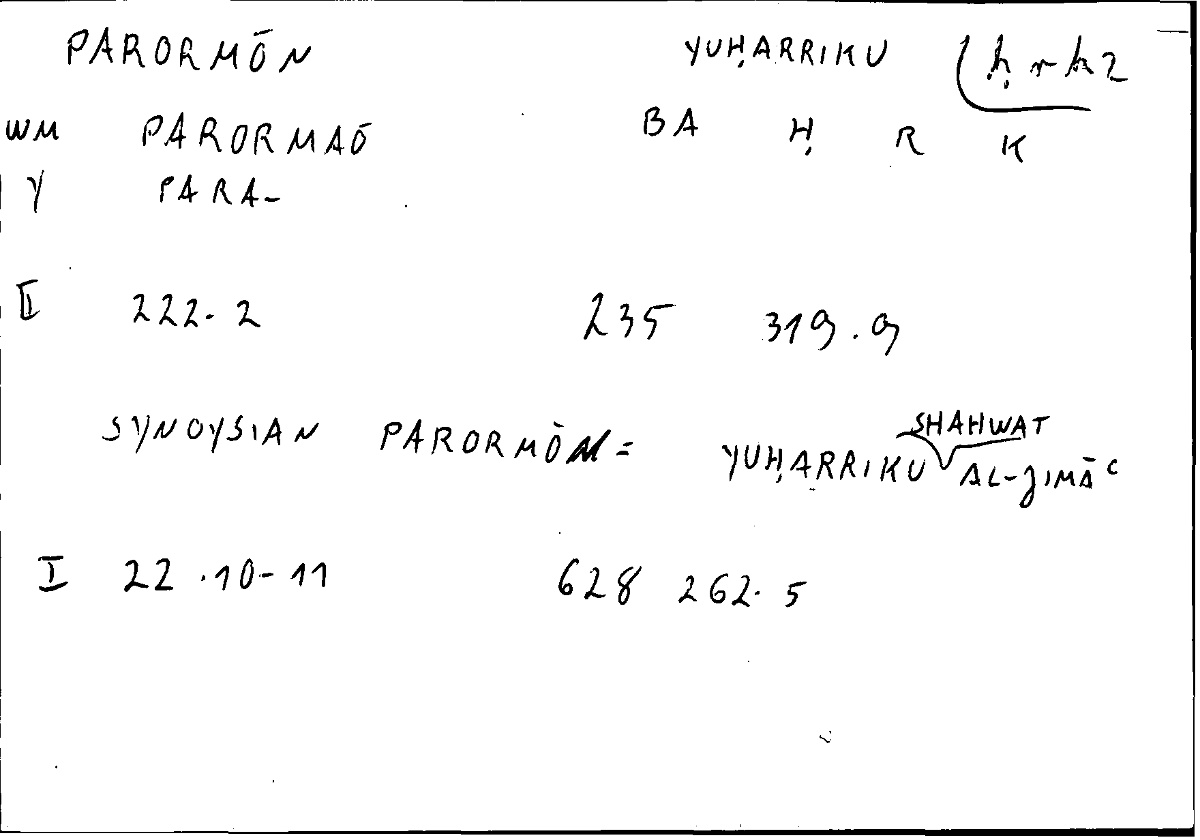 PARORMŌN YUḤARRIKU ḥrk2
WM PARORMAŌ BA Ḥ R K
Y PARA-
II 222.2 235 319.9
SYNOYSIAN PARORMŌN = YUḤARRIKU SHAHWAT AL-JIMĀC
I 22.10-11 628 262.5